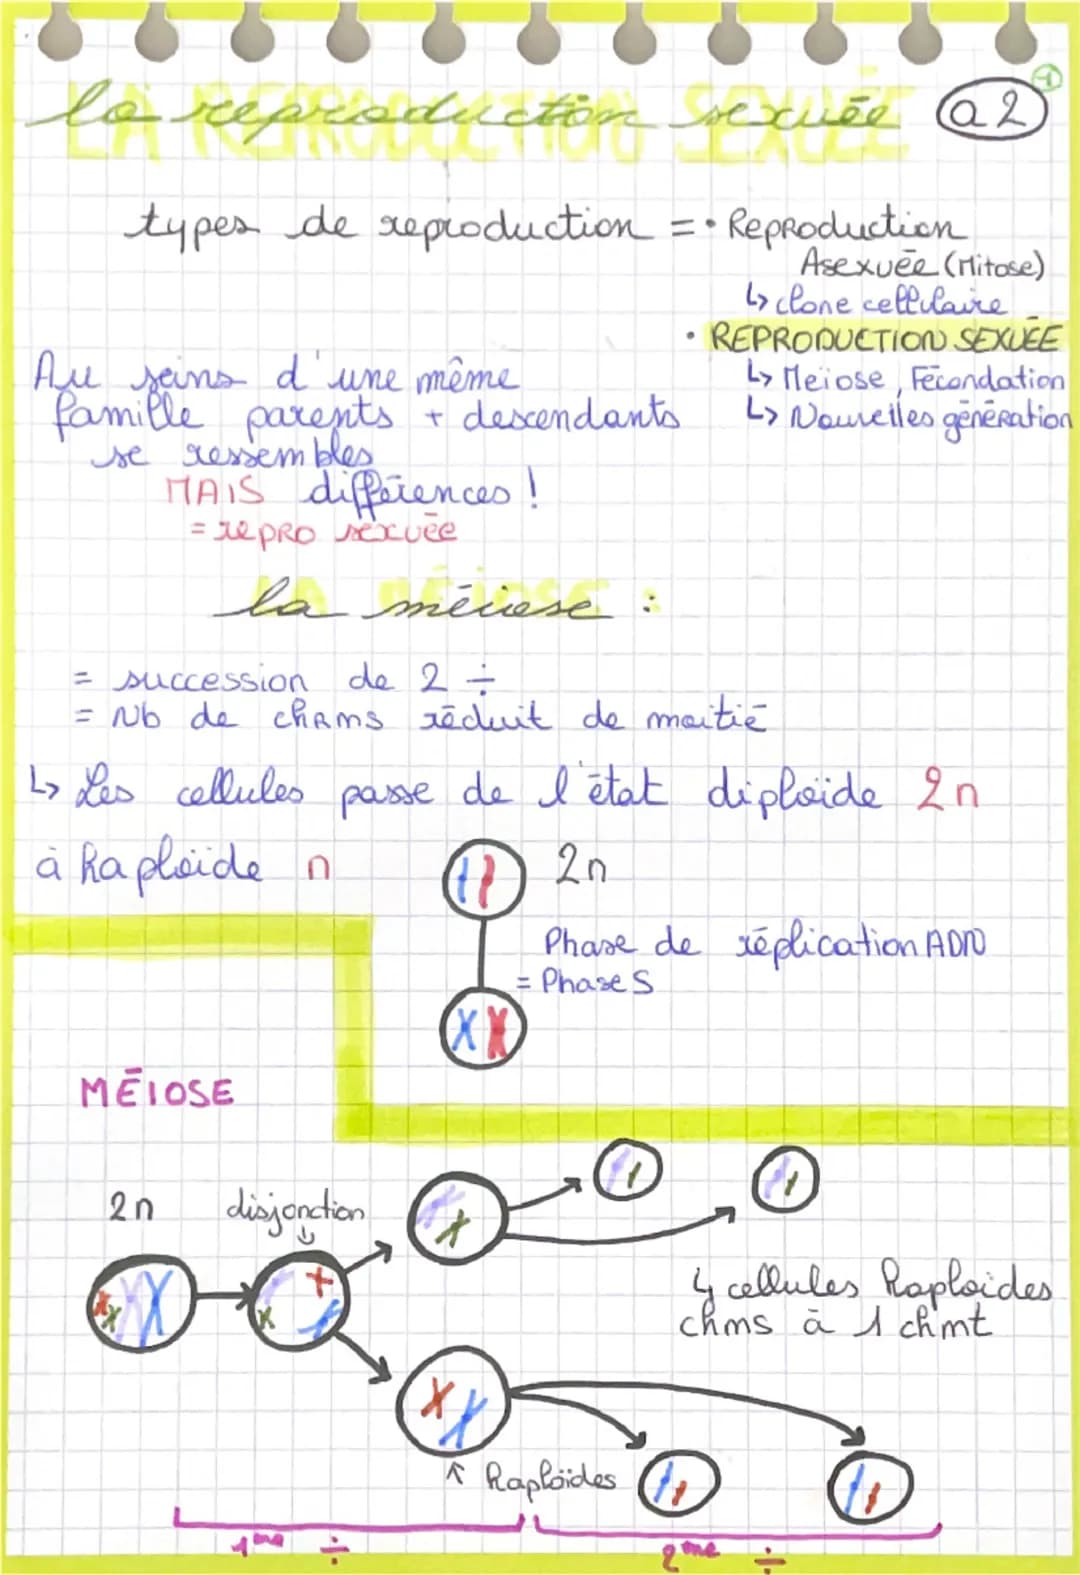 la reproduction sexuée a2
LA REPRODUCTION SEXUÉE
types de reproduction = • Reproduction
Asexuée (Mitose)
↳ clone cellulaire
• REPRODUCTION SEXUÉE
↳ Meïose, Fécondation
↳ Nouvelles génération
Au seins d'une même
famille parents + descendants
se ressembles
MAIS différences !
= repro sexuée
la méiose :
= succession de 2 ÷
= Nb de chRms réduit de moitié
↳ Les cellules passe de l'état diploïde 2n
à haploïde n
2n
Phase de réplication ADN
= Phase S
MÉIOSE
2n disjonction
4 cellules haploïdes
chms à 1 chmt
↑ haploïdes
1ère ÷
2ème ÷